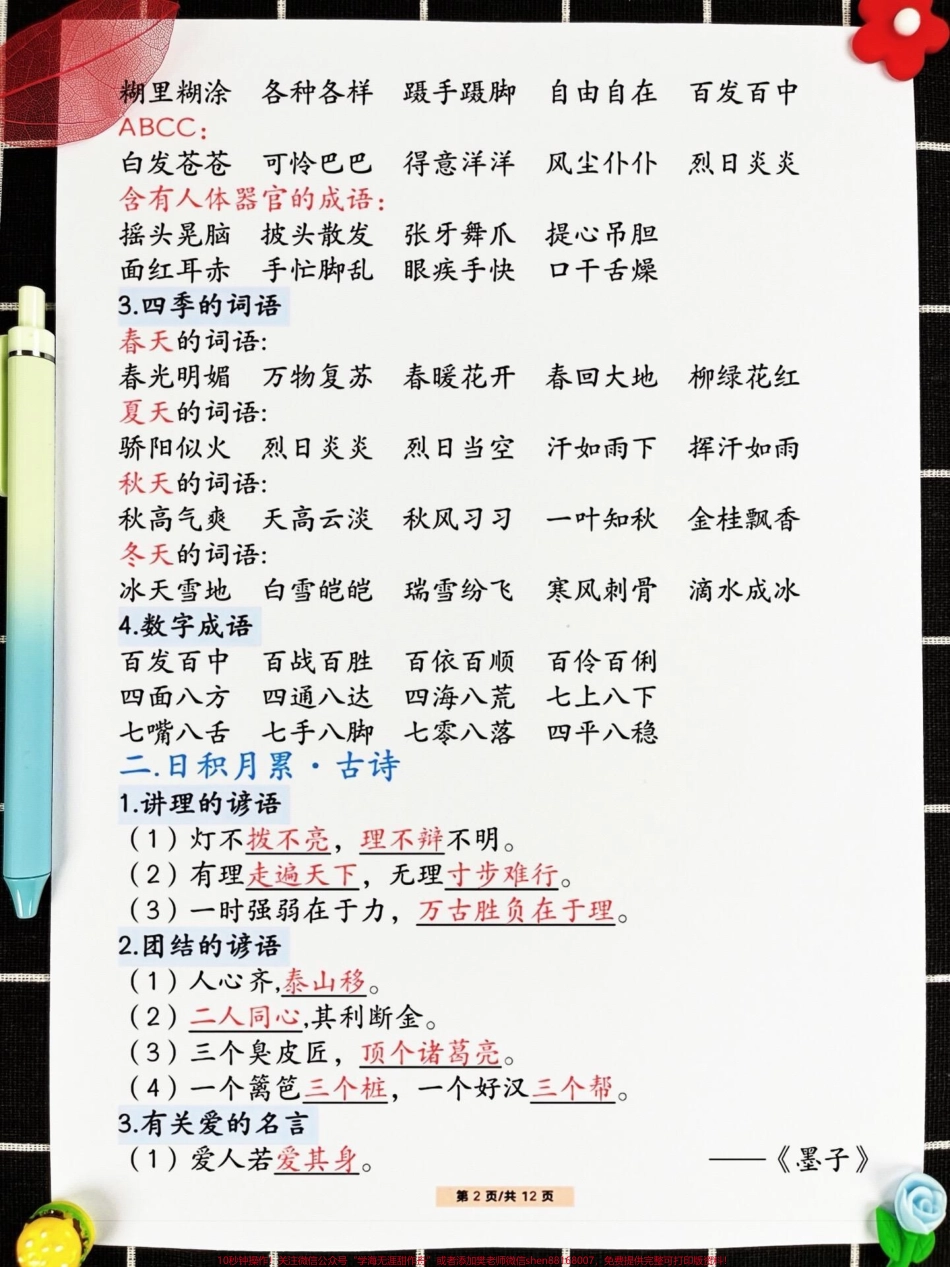 糊里糊涂 各种各样 蹑手蹑脚 自由自在 百发百中
ABCC：
白发苍苍 可怜巴巴 得意洋洋 风尘仆仆 烈日炎炎
含有人体器官的成语：
摇头晃脑 披头散发 张牙舞爪 提心吊胆
面红耳赤 手忙脚乱 眼疾手快 口干舌燥
3.四季的词语
春天的词语:
春光明媚 万物复苏 春暖花开 春回大地 柳绿花红
夏天的词语:
骄阳似火 烈日炎炎 烈日当空 汗如雨下 挥汗如雨
秋天的词语:
秋高气爽 天高云淡 秋风习习 一叶知秋 金桂飘香
冬天的词语:
冰天雪地 白雪皑皑 瑞雪纷飞 寒风刺骨 滴水成冰
4.数字成语
百发百中 百战百胜 百依百顺 百伶百俐
四面八方 四通八达 四海八荒 七上八下
七嘴八舌 七手八脚 七零八落 四平八稳
二.日积月累·古诗
1.讲理的谚语
（1）灯不拨不亮，理不辩不明。
（2）有理走遍天下，无理寸步难行。
（3）一时强弱在于力，万古胜负在于理。
2.团结的谚语
（1）人心齐,泰山移。
（2）二人同心,其利断金。
（3）三个臭皮匠，顶个诸葛亮。
（4）一个篱笆三个桩，一个好汉三个帮。
3.有关爱的名言
（1）爱人若爱其身。 ——《墨子》
第 2 页/共 12 页
10秒钟操作：关注微信公众号“学海无涯甜作舟”或者添加樊老师微信shen88168007，免费提供完整可打印版资料！